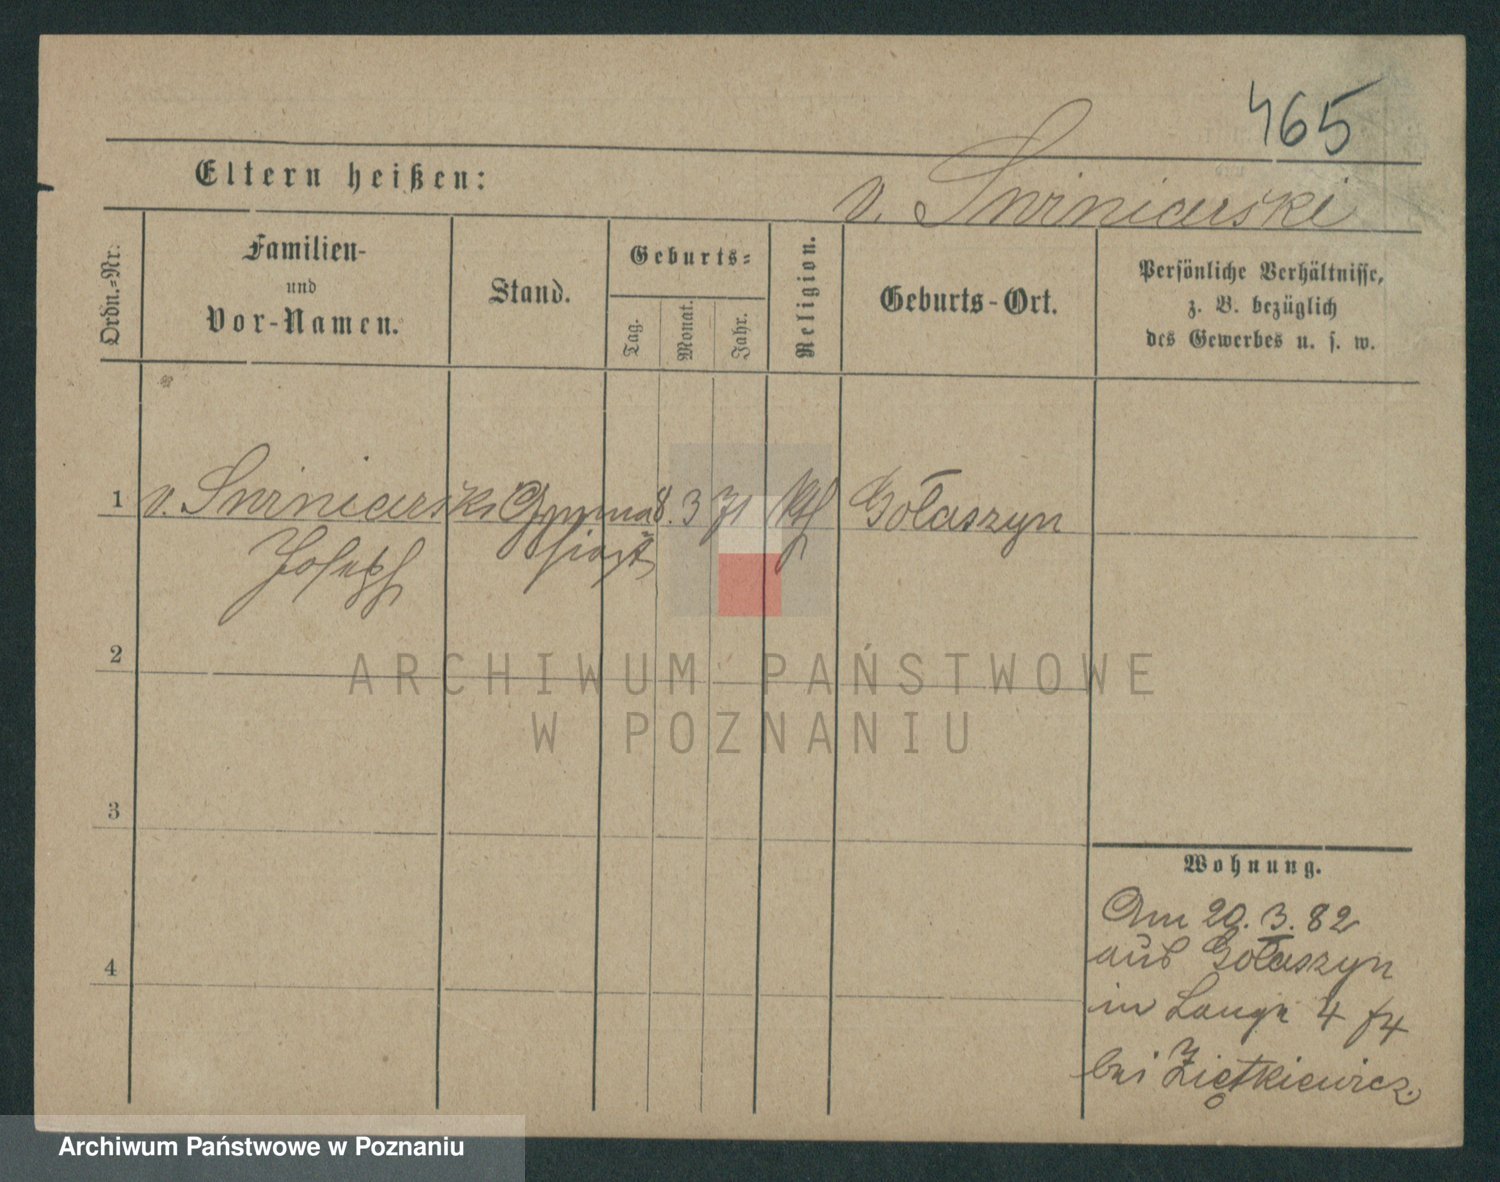 465
Eltern heißen:
v. Swinicarski
Ordn.-Nr.
Familien-
und
Vor-Namen.
Stand.
Geburts-
Tag.
Monat.
Jahr.
Religion.
Geburts-Ort.
Persönliche Verhältnisse,
z. B. bezüglich
des Gewerbes u. s. w.
1 v. Swinicarski Gymna 8. 3 71 Gołaszyn
Joseph siast
2
ARCHIWUM PAŃSTWOWE
W POZNANIU
3
Wohnung.
Am 20. 3. 82
aus Gołaszyn
in Lange 4 f4
bei Ziętkiewicz.
4
Archiwum Państwowe w Poznaniu